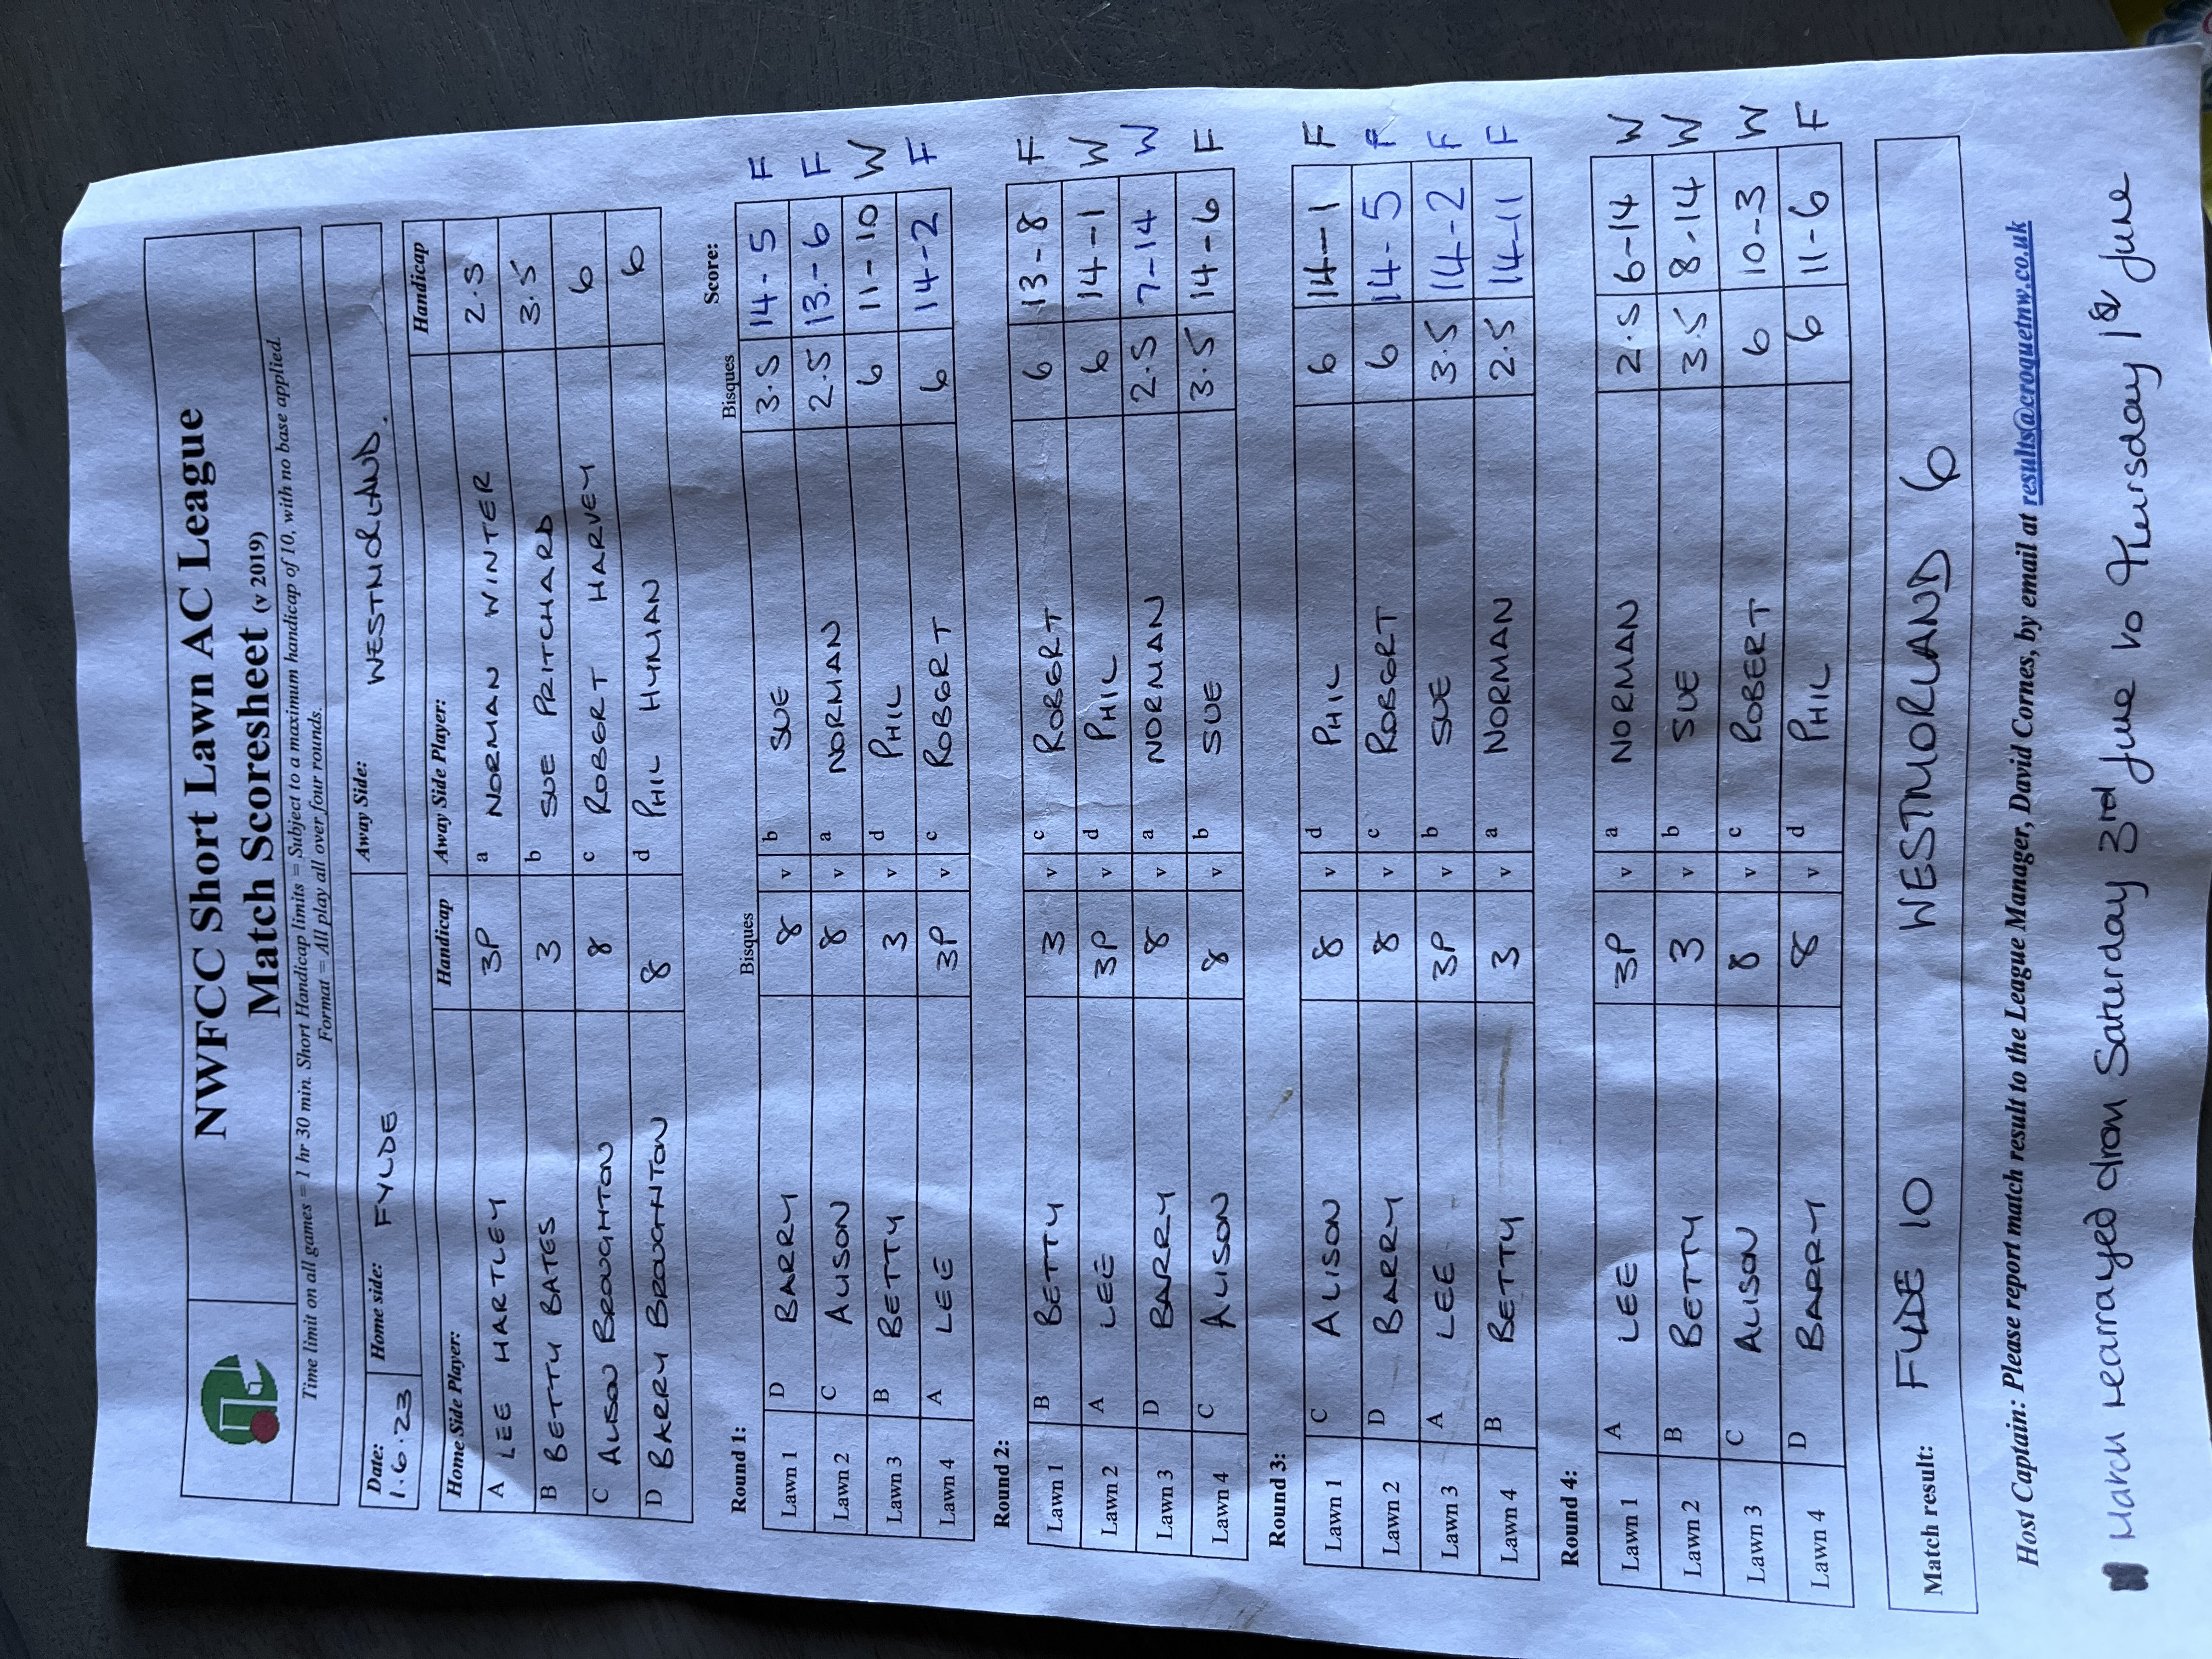 NWFCC Short Lawn AC League
Match Scoresheet (v 2019)
Time limit on all games = 1 hr 30 min. Short Handicap limits = Subject to a maximum handicap of 10, with no base applied.
Format = All play all over four rounds.
Date: 1.6.23 Home side: FYLDE Away Side: WESTMORLAND.
Home Side Player: Handicap Away Side Player: Handicap
A LEE HARTLEY 3P a NORMAN WINTER 2.5
B BETTY BATES 3 b SUE PRITCHARD 3.5
C ALISON BROUGHTON 8 c ROBERT HARVEY 6
D BARRY BROUGHTON 8 d PHIL HYMAN 6
Round 1: Bisques Bisques Score:
Lawn 1 D BARRY 8 v b SUE 3.5 14-5 F
Lawn 2 C ALISON 8 v a NORMAN 2.5 13-6 F
Lawn 3 B BETTY 3 v d PHIL 6 11-10 W
Lawn 4 A LEE 3P v c ROBERT 6 14-2 F
Round 2:
Lawn 1 B BETTY 3 v c ROBERT 6 13-8 F
Lawn 2 A LEE 3P v d PHIL 6 14-1 W
Lawn 3 D BARRY 8 v a NORMAN 2.5 7-14 W
Lawn 4 C ALISON 8 v b SUE 3.5 14-6 F
Round 3:
Lawn 1 C ALISON 8 v d PHIL 6 14-1 F
Lawn 2 D BARRY 8 v c ROBERT 6 14-5 F
Lawn 3 A LEE 3P v b SUE 3.5 14-2 F
Lawn 4 B BETTY 3 v a NORMAN 2.5 14-11 F
Round 4:
Lawn 1 A LEE 3P v a NORMAN 2.5 6-14 W
Lawn 2 B BETTY 3 v b SUE 3.5 8-14 W
Lawn 3 C ALISON 8 v c ROBERT 6 10-3 W
Lawn 4 D BARRY 8 v d PHIL 6 11-6 F
Match result: FYLDE 10 WESTMORLAND 6
Host Captain: Please report match result to the League Manager, David Cornes, by email at results@croquetnw.co.uk
Match rearrayed from Saturday 3rd June to Thursday 1st June